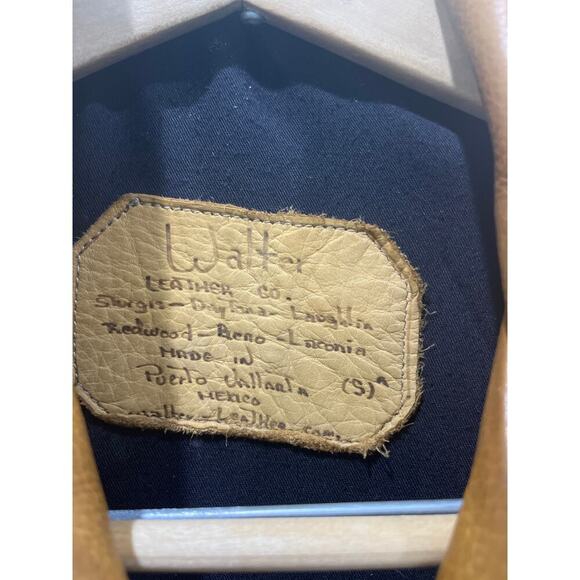 Walter
LEATHER CO.
Sturgis - Daytona - Laughlin
Redwood - Reno - Laconia
MADE IN
Puerto Vallarta (S)^A
MEXICO
walter-Leather.com